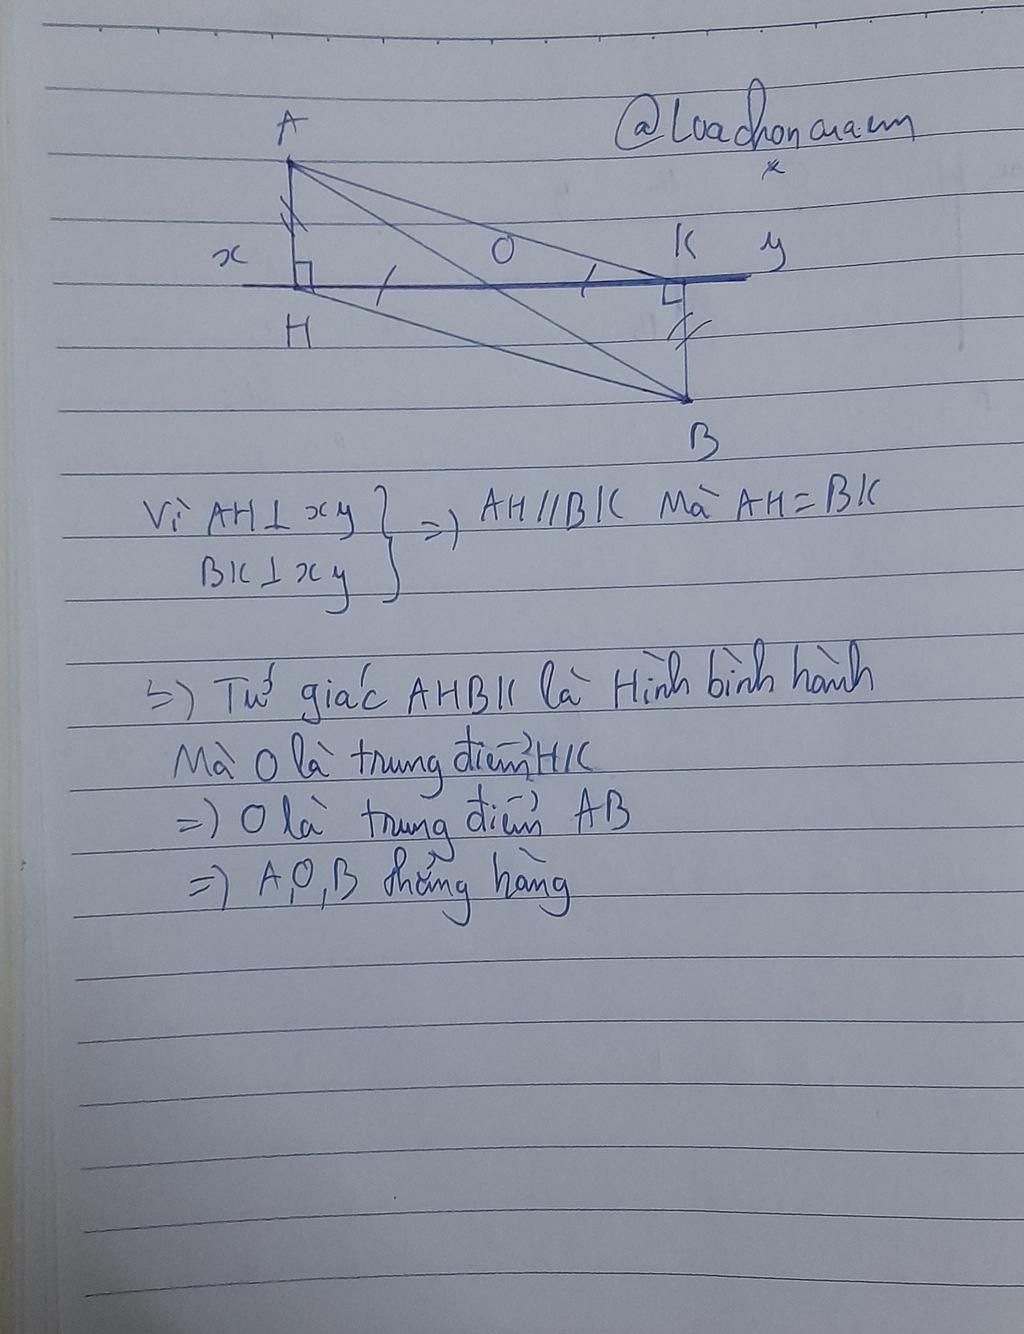 @Luachoncuaem
A
x
O
K
y
H
B
Vì AH ⊥ xy } => AH // BK Mà AH = BK
BK ⊥ xy
=> Tứ giác AHBK là Hình bình hành
Mà O là trung điểm HK
=> O là trung điểm AB
=> A, O, B thẳng hàng